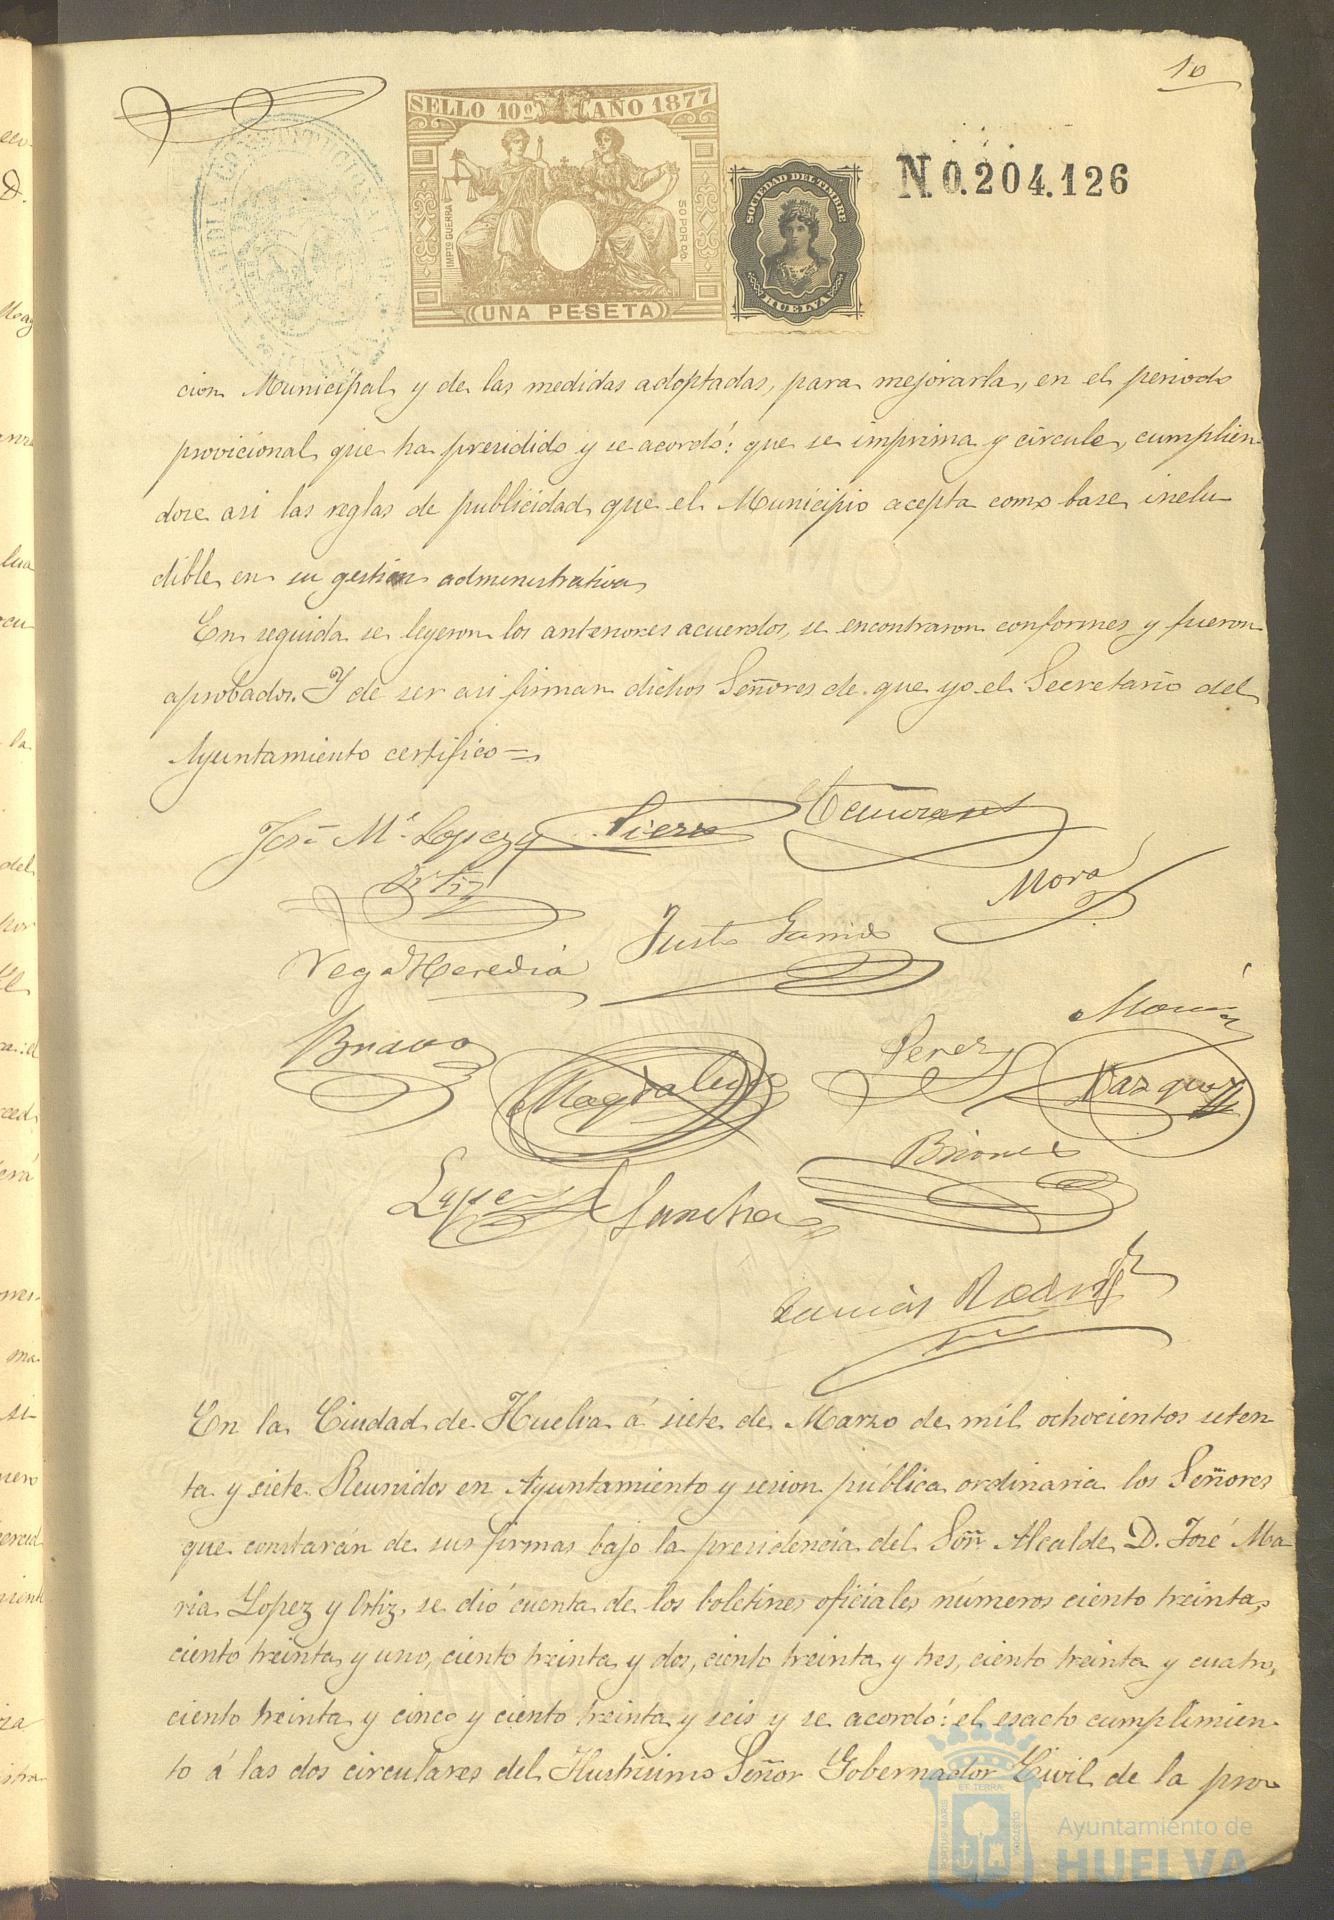 10
SELLO 10º AÑO 1877
IMPTO GUERRA
50 POR 00.
UNA PESETA
SOCIEDAD DEL TIMBRE
HUELVA
N 0.204.126
cion Municipal y de las medidas adoptadas, para mejorarla, en el periodo
provicional que ha presidido y se acordó: que se imprima y circule, cumplien-
dose asi las reglas de publicidad que el Municipio acepta como base inelu
dible en su gestion administrativa
En seguida se leyeron los anteriores acuerdos, se encontraron conformes y fueron
aprobados. Y de ser asi firman dichos Señores de que yo el Secretario del
Ayuntamiento certifico =
José Mª Lopez y
Ortiz
Mora
Vega Heredia
Justo Garrido
Bravo
Perez
Vazquez
Briones
Lopez Sanchez
En la Ciudad de Huelva á siete de Marzo de mil ochocientos seten
ta y siete. Reunidos en Ayuntamiento y sesion pública ordinaria los Señores
que constarán de sus firmas bajo la presidencia del Soñr Alcalde D. José Ma
ria Lopez y Ortiz, se dió cuenta de los boletines oficiales números ciento treinta,
ciento treinta y uno, ciento treinta y dos, ciento treinta y tres, ciento treinta y cuatro,
ciento treinta y cinco y ciento treinta y seis y se acordó: el esacto cumplimien-
to á las dos circulares del Ilustrisimo Señor Gobernador Civil de la prov
PORTUS MARIS
ET TERRA
CUSTODIA
Ayuntamiento de
HUELVA